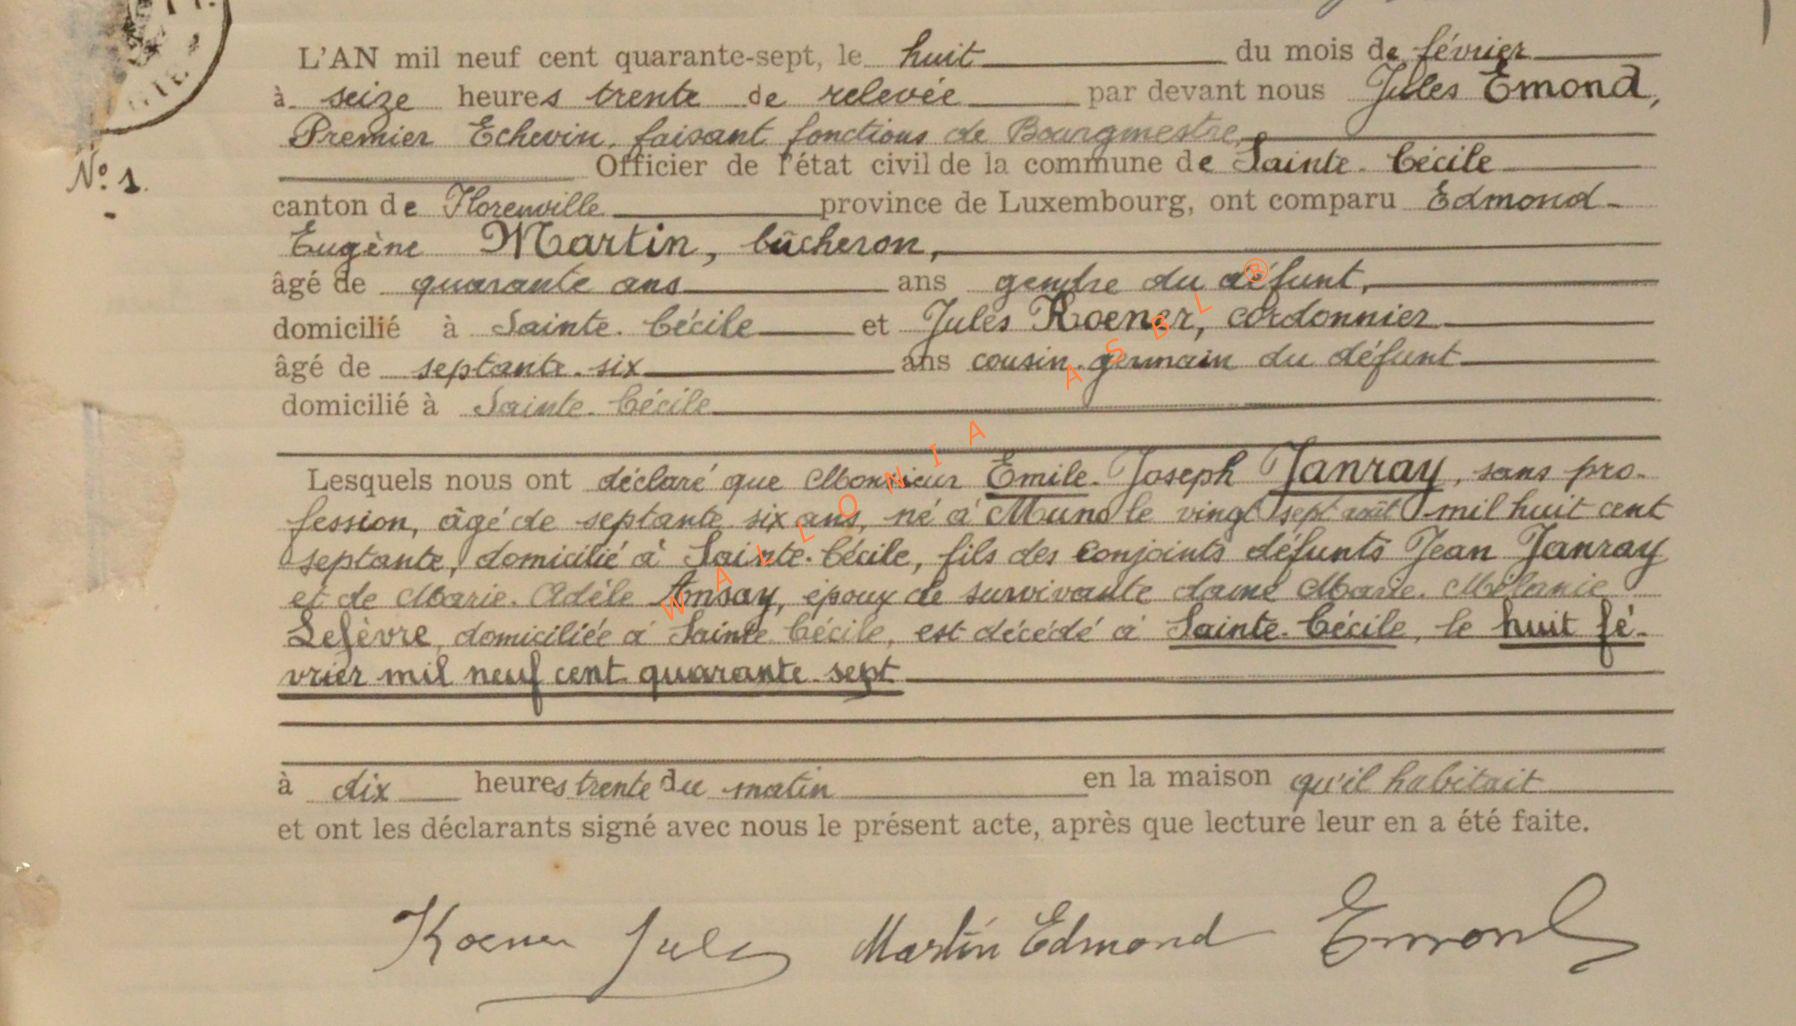 L'AN mil neuf cent quarante-sept, le huit du mois de février
à seize heures trente de relevée par devant nous Jules Emond,
Premier Echevin, faisant fonctions de Bourgmestre,
Officier de l'état civil de la commune de Sainte-Cécile
N° 1.
canton de Florenville province de Luxembourg, ont comparu Edmond-
Eugène Martin, bûcheron,
âgé de quarante ans ans gendre du défunt,
domicilié à Sainte-Cécile et Jules Koener, cordonnier
âgé de septante-six ans cousin-germain du défunt
domicilié à Sainte-Cécile
Lesquels nous ont déclaré que Monsieur Emile-Joseph Janray, sans pro-
fession, âgé de septante six ans, né à Muno le vingt sept août mil huit cent
septante, domicilié à Sainte-Cécile, fils des conjoints défunts Jean Janray
et de Marie-Adèle Ansay, époux de survivante dame Marie-Mélanie
Lefèvre, domiciliée à Sainte Cécile, est décédé à Sainte-Cécile, le huit fé-
vrier mil neuf cent quarante-sept
à dix heures trente du matin en la maison qu'il habitait
et ont les déclarants signé avec nous le présent acte, après que lecture leur en a été faite.
Koener Jules Martin Edmond Emond
WALLONIA ASBL ®